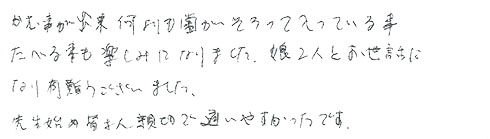 か む事が出来 何よりも歯がそろって入っている事
たべる事も楽しみになりました、娘2人とお世話に
なり有難うございました、
先生始め皆さん親切で通いやすかったです。